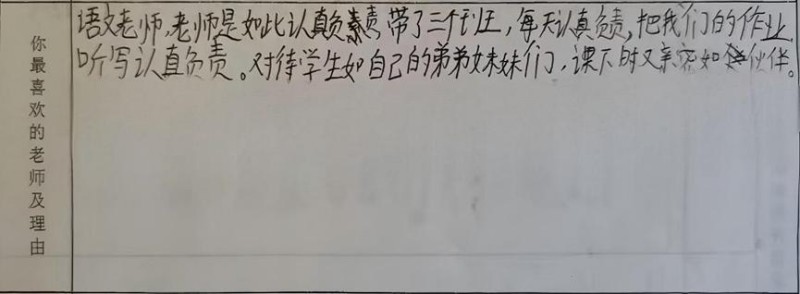 你最喜欢的老师及理由
语文老师,老师是如此认真负责,带了三个班,每天认真负责,把我们的作业,
听写认真负责。对待学生如自己的弟弟妹妹们,课下时又亲密如伙伴。